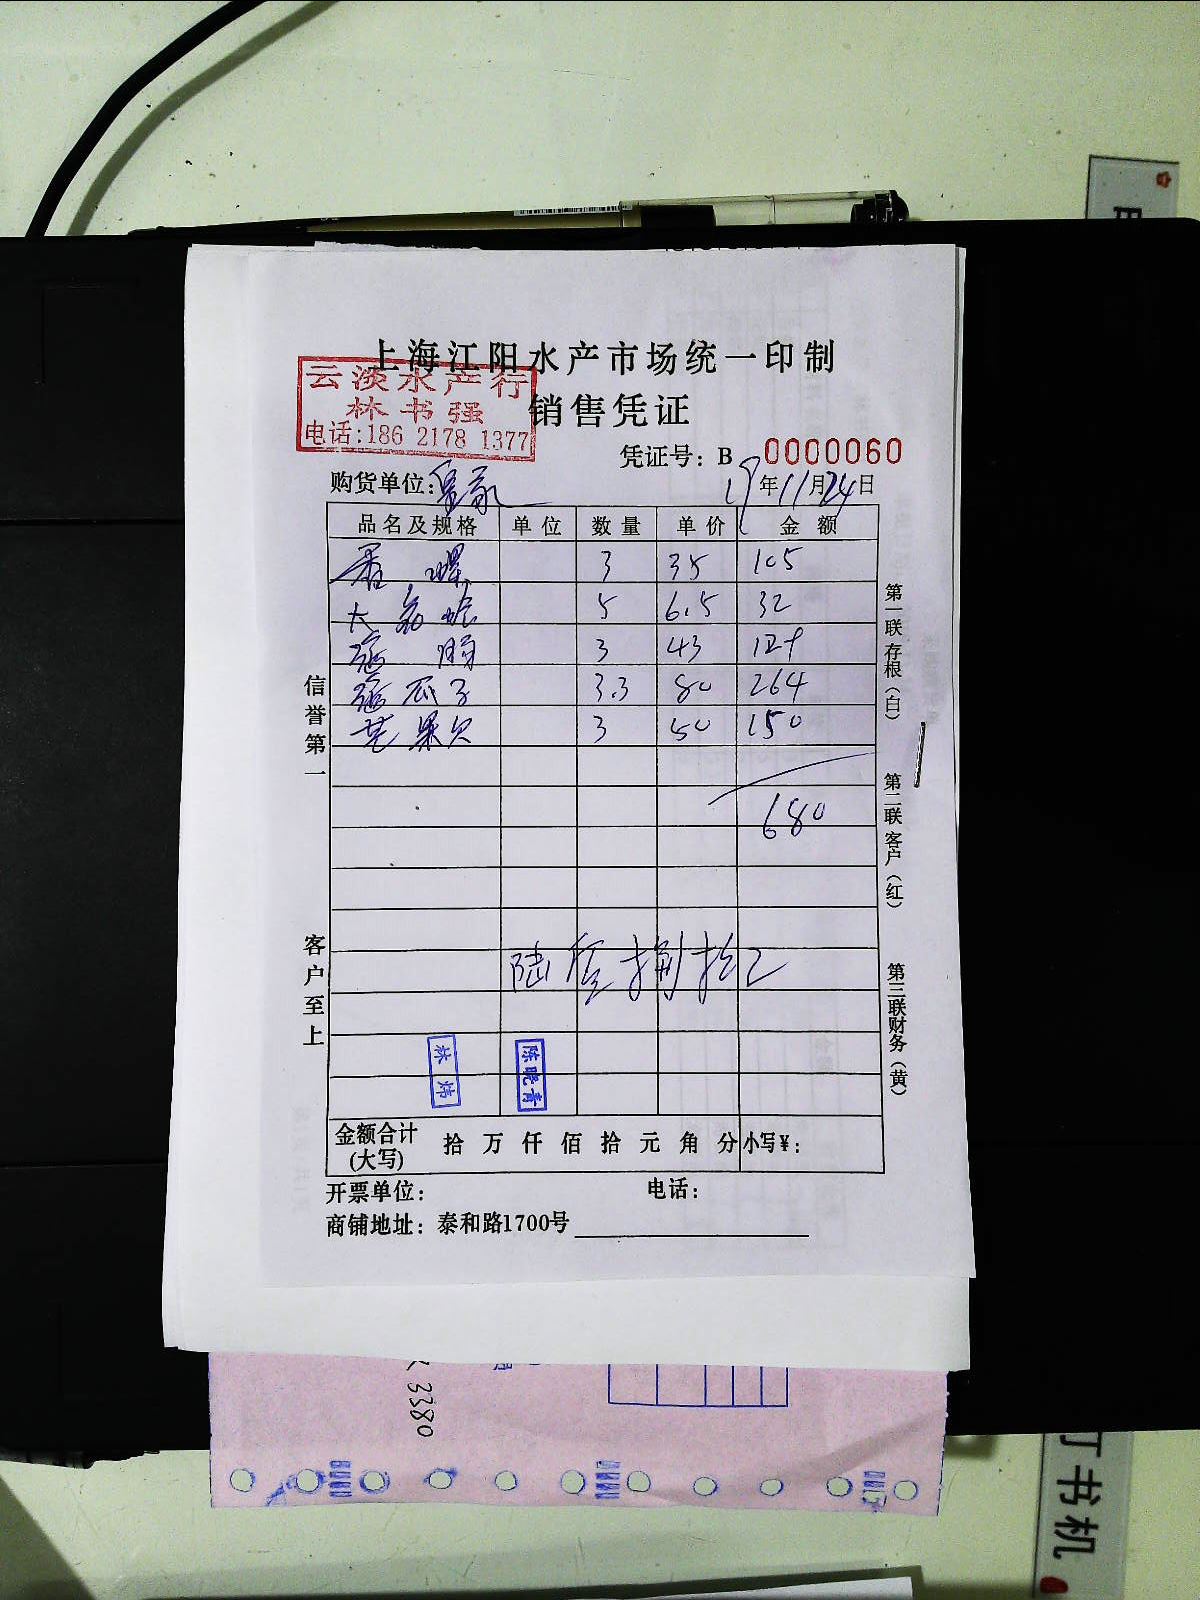 上海江阳水产市场统一印制
云淡水产行
林书强
电话:186 2178 1377
销售凭证
凭证号: B 0000060
购货单位: 19年11月24日
品名及规格 单位 数量 单价 金额
香螺 3 35 105
大 蛤 5 6.5 32
3 43 129
瓜子 3.3 80 264
芒果贝 3 50 150
680
陆佰捌拾元
信誉第一
客户至上
第一联存根(白)
第二联客户(红)
第三联财务(黄)
林炜
陈晓青
金额合计(大写) 拾 万 仟 佰 拾 元 角 分 小写¥:
开票单位: 电话:
商铺地址: 泰和路1700号
3380
订书机